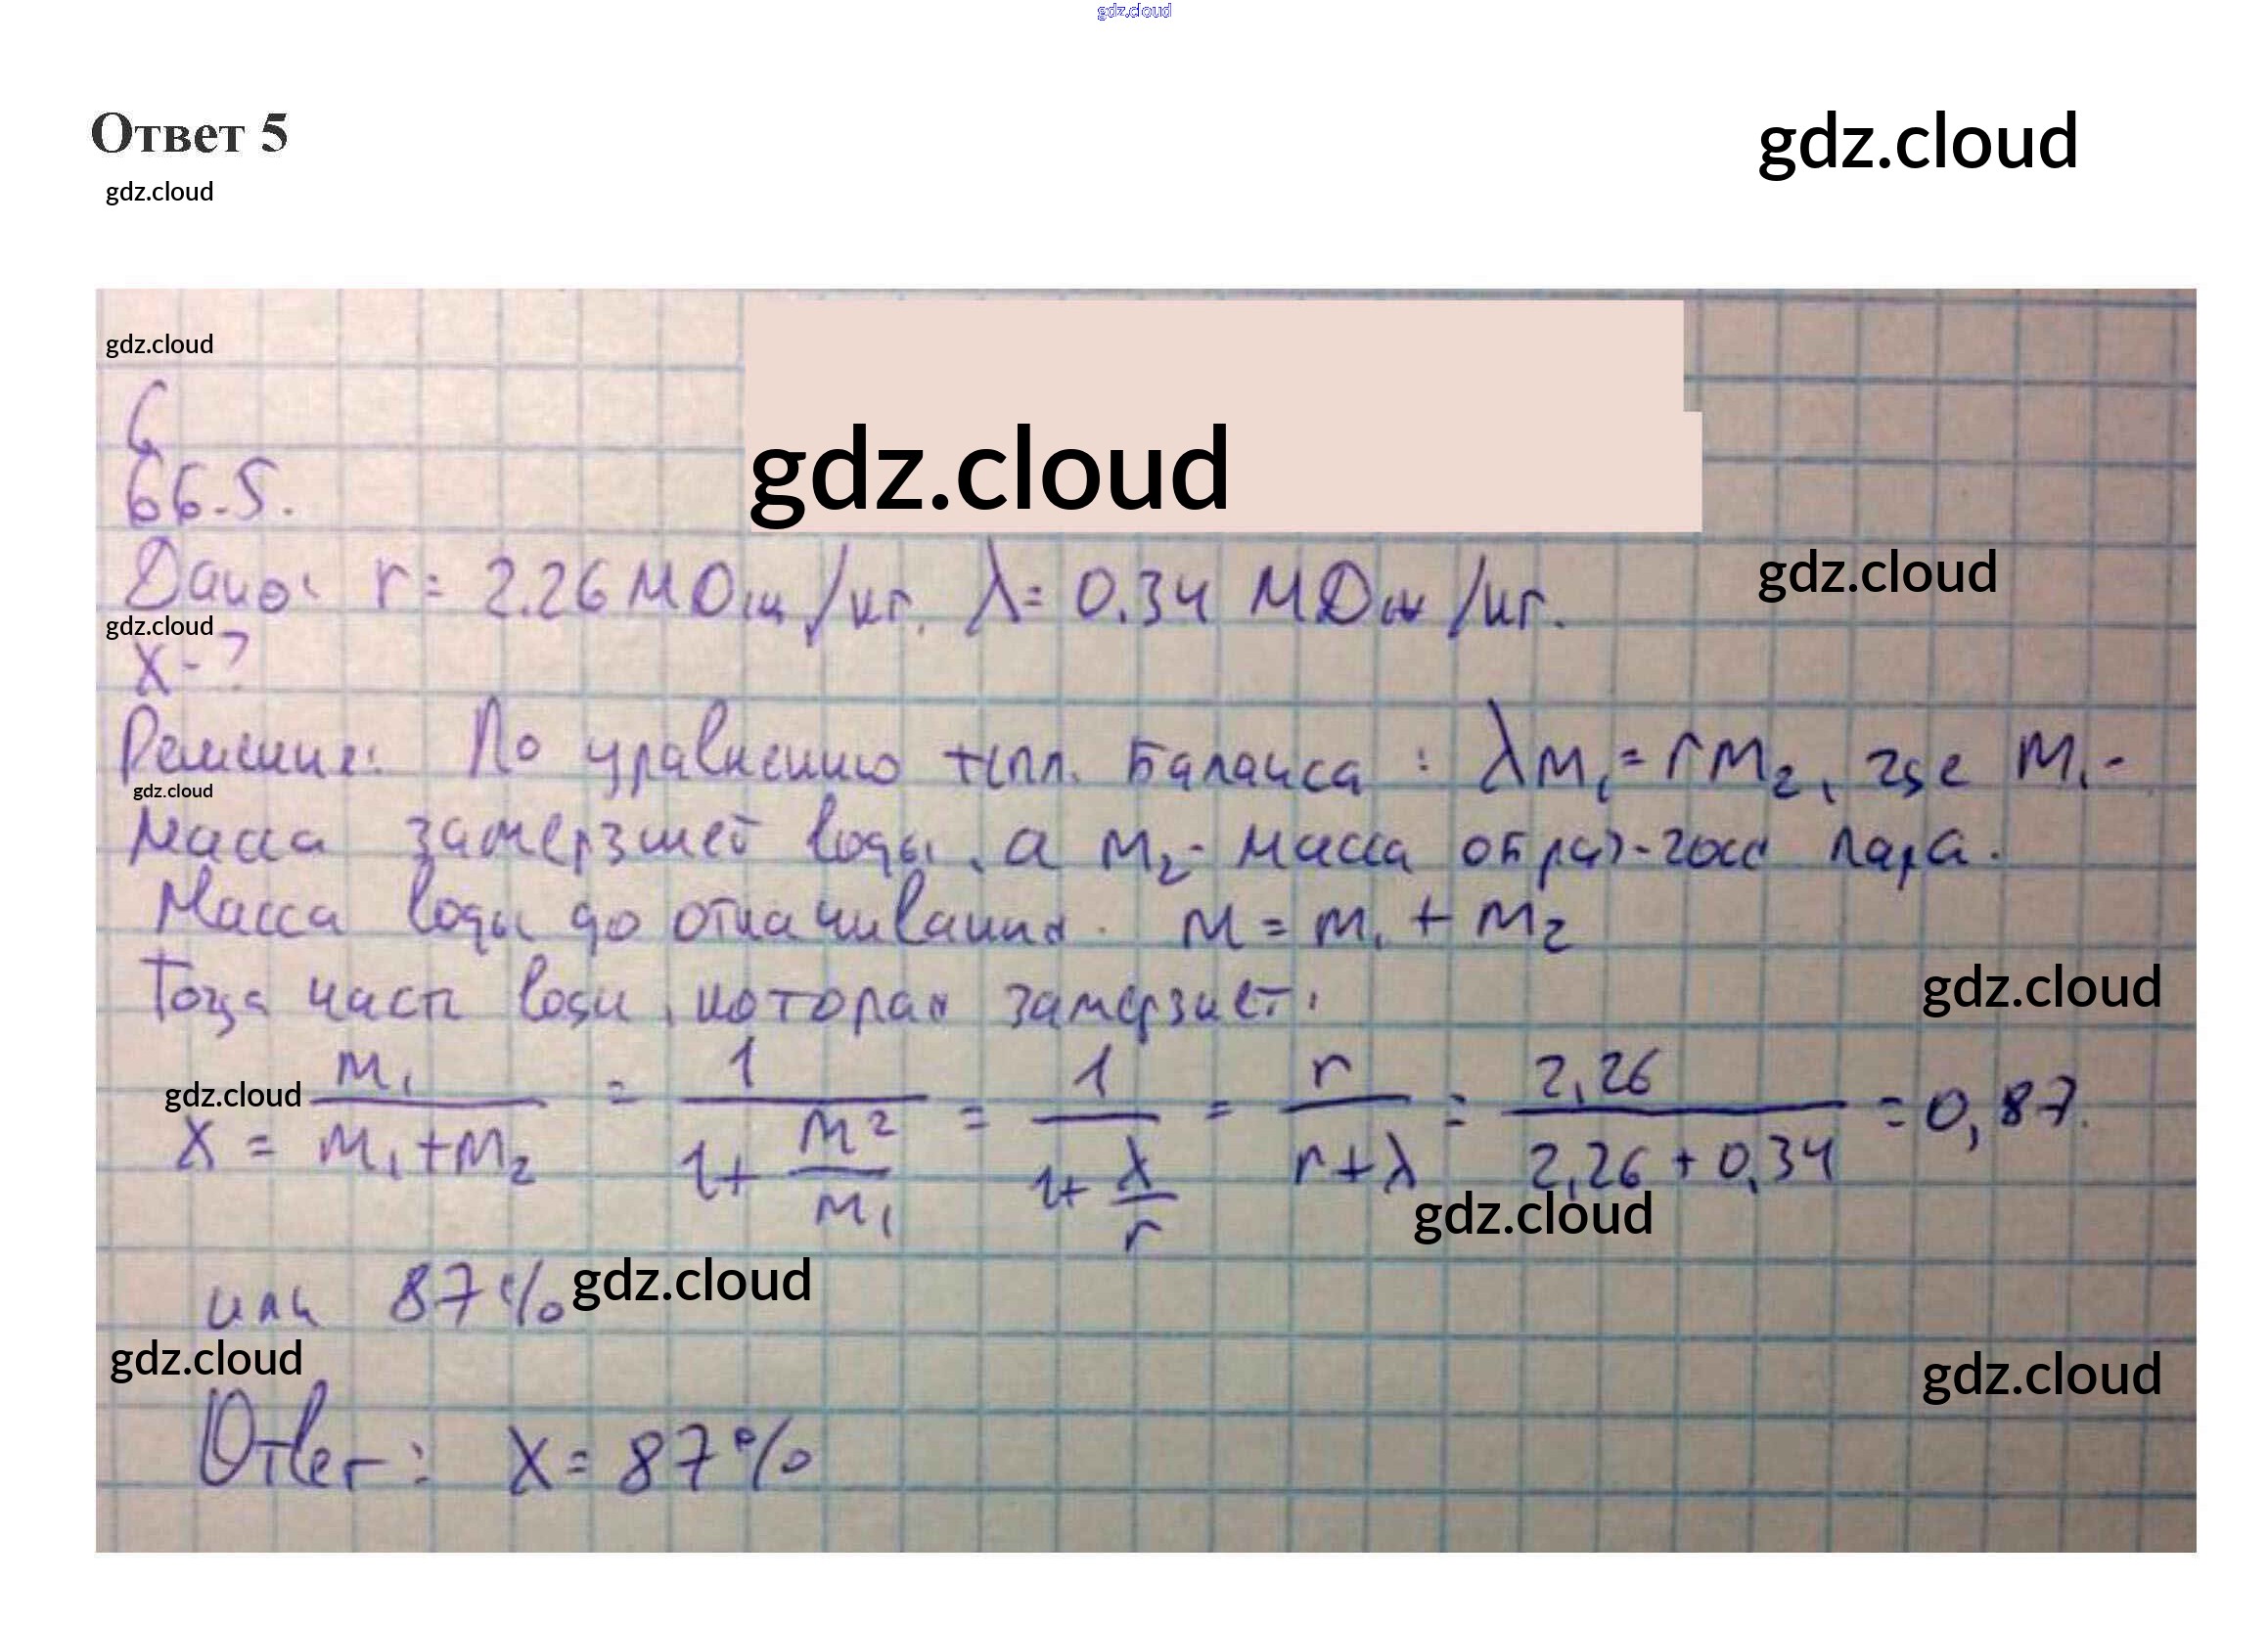 gdz.cloud
Ответ 5
gdz.cloud
gdz.cloud
gdz.cloud
66.5.
gdz.cloud
Дано: r = 2.26 МДж/кг. λ = 0.34 МДж/кг.
gdz.cloud
gdz.cloud
x - ?
Решение: По уравнению тепл. баланса: λm₁ = rm₂, где m₁ -
gdz.cloud
масса замерзшей воды, а m₂ - масса образ-гося пара.
Масса воды до откачивания. m = m₁ + m₂
Тогда часть воды, которая замерзнет:
gdz.cloud
x = m₁/(m₁+m₂) = 1/(1+m2/m₁) = 1/(1+λ/r) = r/(r+λ) = 2,26/(2,26+0,34) = 0,87.
gdz.cloud
gdz.cloud
или 87%
gdz.cloud
gdz.cloud
gdz.cloud
Ответ: x = 87%